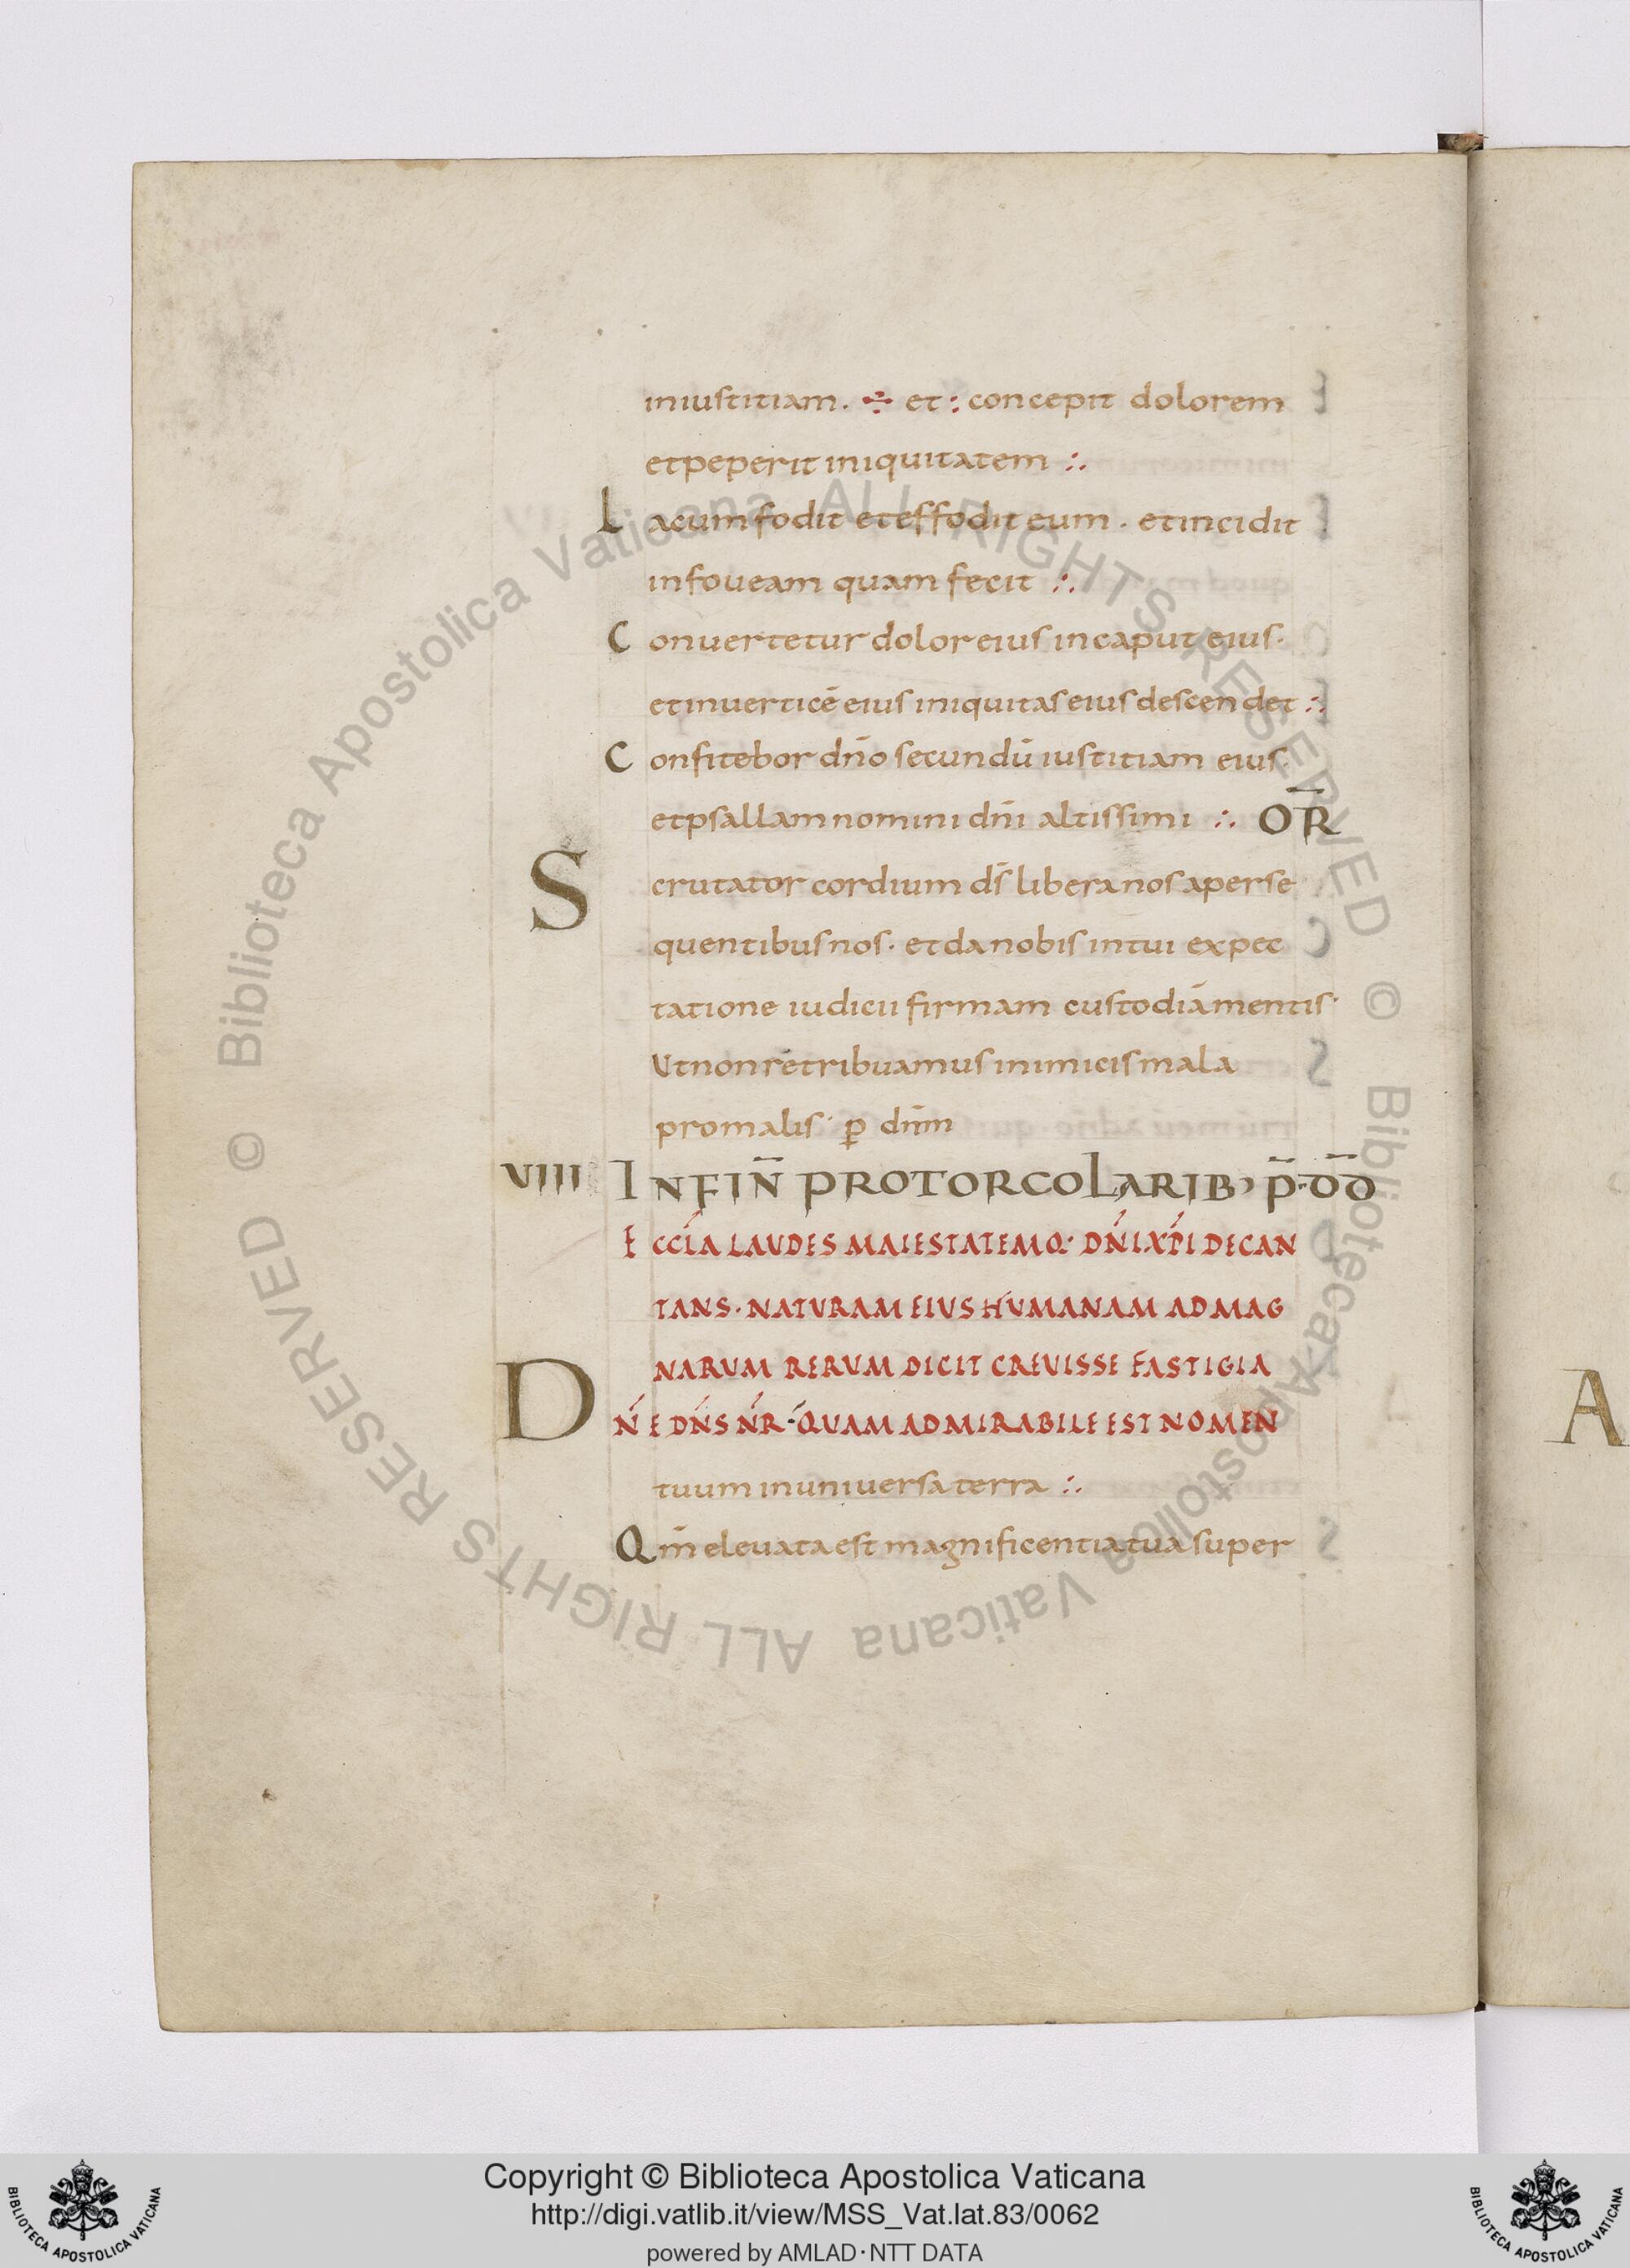 iniustitiam. ÷ et : concepit dolorem
et peperit iniquitatem :.
Lacum fodit et effodit eum. et incidit
in foueam quam fecit :.
Conuertetur dolor eius in caput eius.
et in uerticē eius iniquitas eius descendet :.
Confitebor dn̄o secundū iustitiam eius.
et psallam nomini dn̄i altissimi :. OR̄
Scrutator cordium ds̄ libera nos a perse
quentibus nos. et da nobis intui expec
tatione iudicii firmam custodiā mentis.
Ut non retribuamus inimicis mala
pro malis. p̄ dn̄m
VIII IN FIN̄ PRO TORCOLARIB; P̄. D̄D̄
ECCL̄A LAUDES MAIESTATEMQ. DN̄I XP̄I DECAN
TANS. NATURAM EIUS HUMANAM AD MAG
NARUM RERUM DICIT CREUISSE FASTIGIA
DN̄E DN̄S N̄R. QUAM ADMIRABILE EST NOMEN
tuum in uniuersa terra :.
Qm̄ eleuata est magnificentia tua super
A
© Biblioteca Apostolica Vaticana ALL RIGHTS RESERVED © Biblioteca Apostolica Vaticana ALL RIGHTS RESERVED
Copyright © Biblioteca Apostolica Vaticana
http://digi.vatlib.it/view/MSS_Vat.lat.83/0062
powered by AMLAD·NTT DATA
BIBLIOTECA APOSTOLICA VATICANA
BIBLIOTECA APOSTOLICA VATICANA